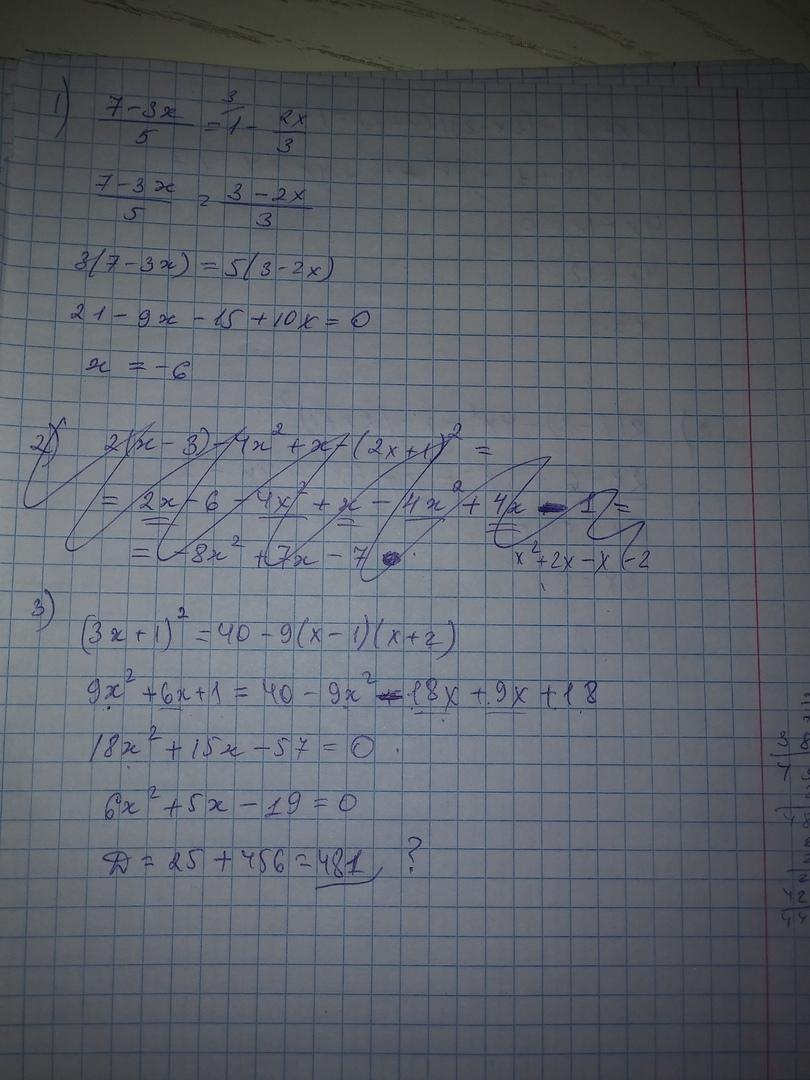 1) (7-3x)/5 = 1^(3/ - 2x/3
(7-3x)/5 = (3-2x)/3
3(7-3x) = 5(3-2x)
21-9x-15+10x=0
x = -6
2) 2(x-3)-4x²+x-(2x+1)² =
= 2x-6-4x²+x-4x²+4x-1 =
= -8x²+7x-7
x²+2x-x-2
3) (3x+1)² = 40-9(x-1)(x+2)
9x²+6x+1 = 40-9x²-18x+9x+18
18x²+15x-57=0
6x²+5x-19=0
D = 25+456=481 ?